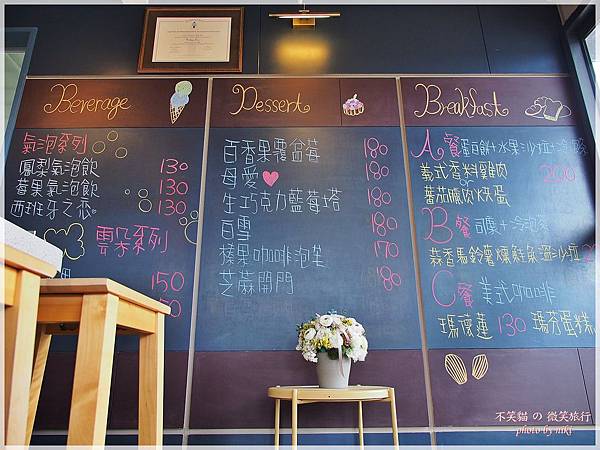 Beverage
氣泡系列
鳳梨氣泡飲 130
莓果氣泡飲 130
西班牙之戀 130
雲朵系列
150
50
Dessert
百香果覆盆莓 180
母愛 180
生巧克力藍莓塔 180
白雪 180
榛果咖啡泡芙 170
芝蔴開門 180
Breakfast
A餐 蛋餅+水果沙拉+冷飲
義式香料雞肉 200
蕃茄臘肉炊蛋
B餐 司康+冷泡茶
蒜香馬鈴薯燻鮭魚溫沙拉
C餐 美式咖啡
瑪德蓮 130 瑪芬蛋糕
不笑貓 の 微笑旅行
photo by niki